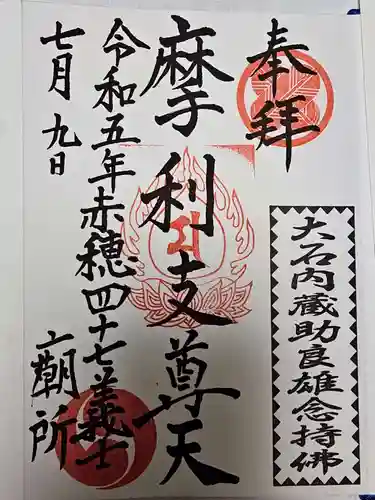 奉拝
大石内蔵助良雄念持佛
摩利支尊天
令和五年赤穂四十七義士
七月九日
廟所